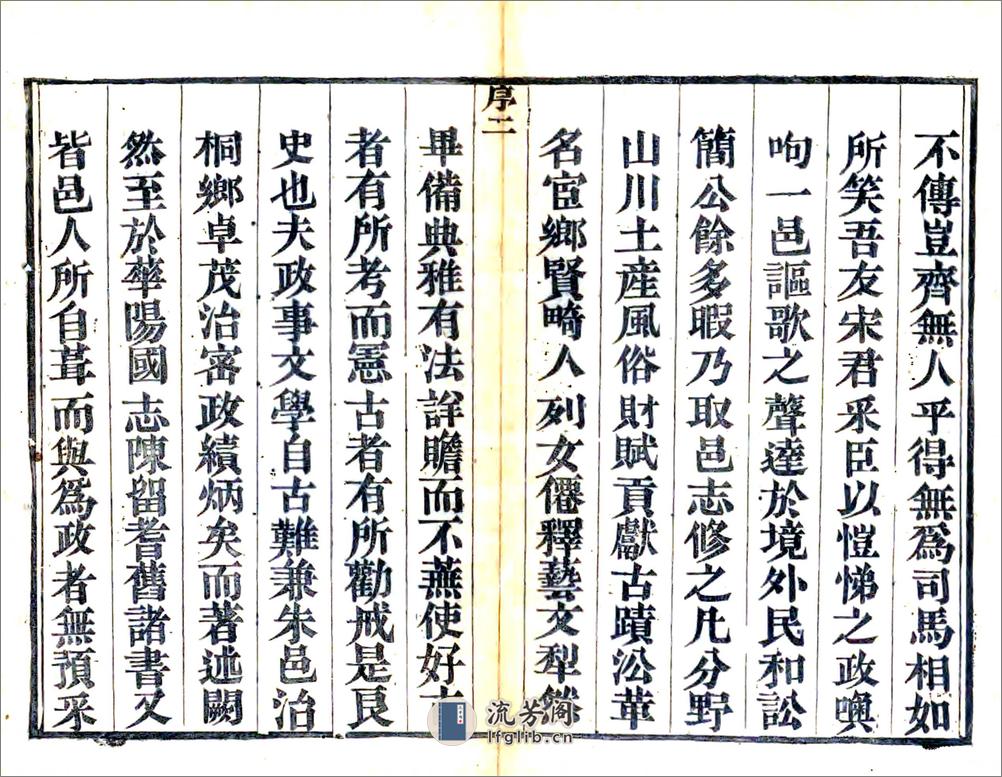 不傳豈齊無人乎得無爲司馬相如
所笑吾友宋君釆臣以愷悌之政噢
咰一邑謳歌之聲達於境外民和訟
簡公餘多暇乃取邑志修之凡分野
山川土産風俗財賦貢獻古蹟㳂革
名宦鄉賢畸人列女僊釋藝文犁然
序二
畢備典雅有法詳贍而不蕪使好古
者有所考而憲古者有所勸戒是良
史也夫政事文學自古難兼朱邑治
桐鄉卓茂治密政績炳矣而著述闕
然至於華陽國志陳留耆舊諸書又
皆邑人所自葺而與爲政者無預釆
流芳阁
lfglib.cn